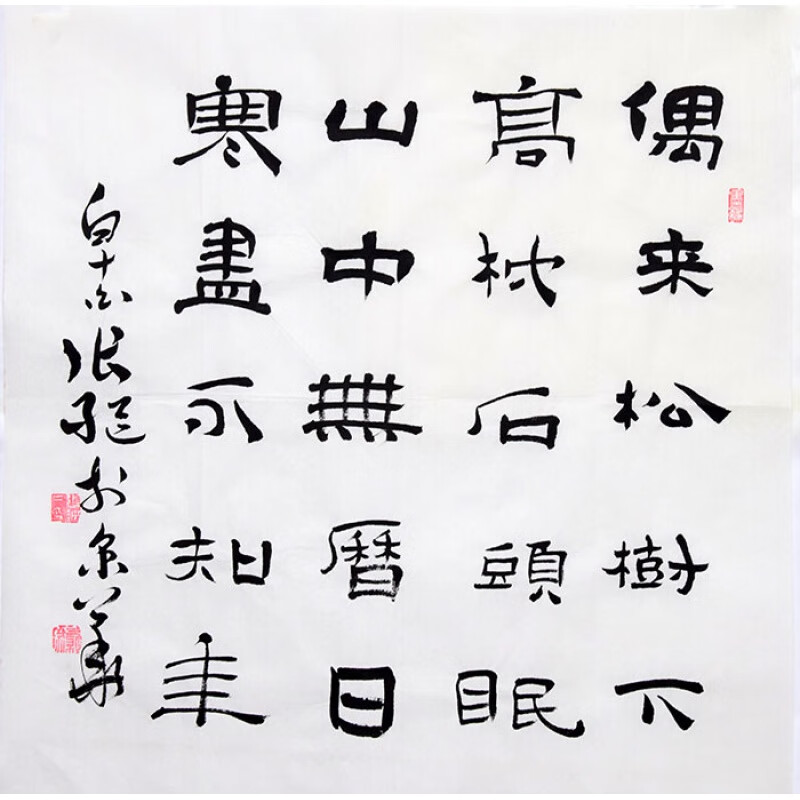 偶来松樹下
高枕石頭眠
山中無曆日
寒盡不知年
張继於京華